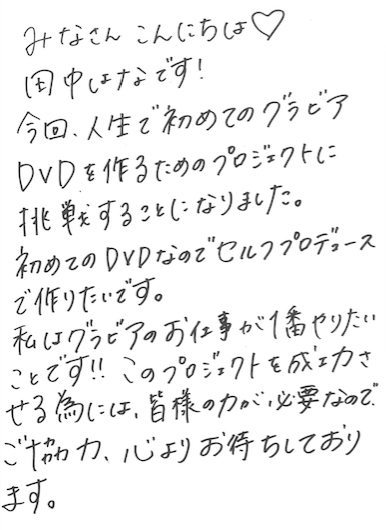 みなさん こんにちは♡
田中はなです!
今回、人生で初めてのグラビア
DVDを作るためのプロジェクトに
挑戦することになりました。
初めてのDVDなのでセルフプロデュース
で作りたいです。
私はグラビアのお仕事が1番やりたい
ことです!! このプロジェクトを成功さ
せる為には、皆様の力が必要なので、
ご協力、心よりお待ちしており
ます。